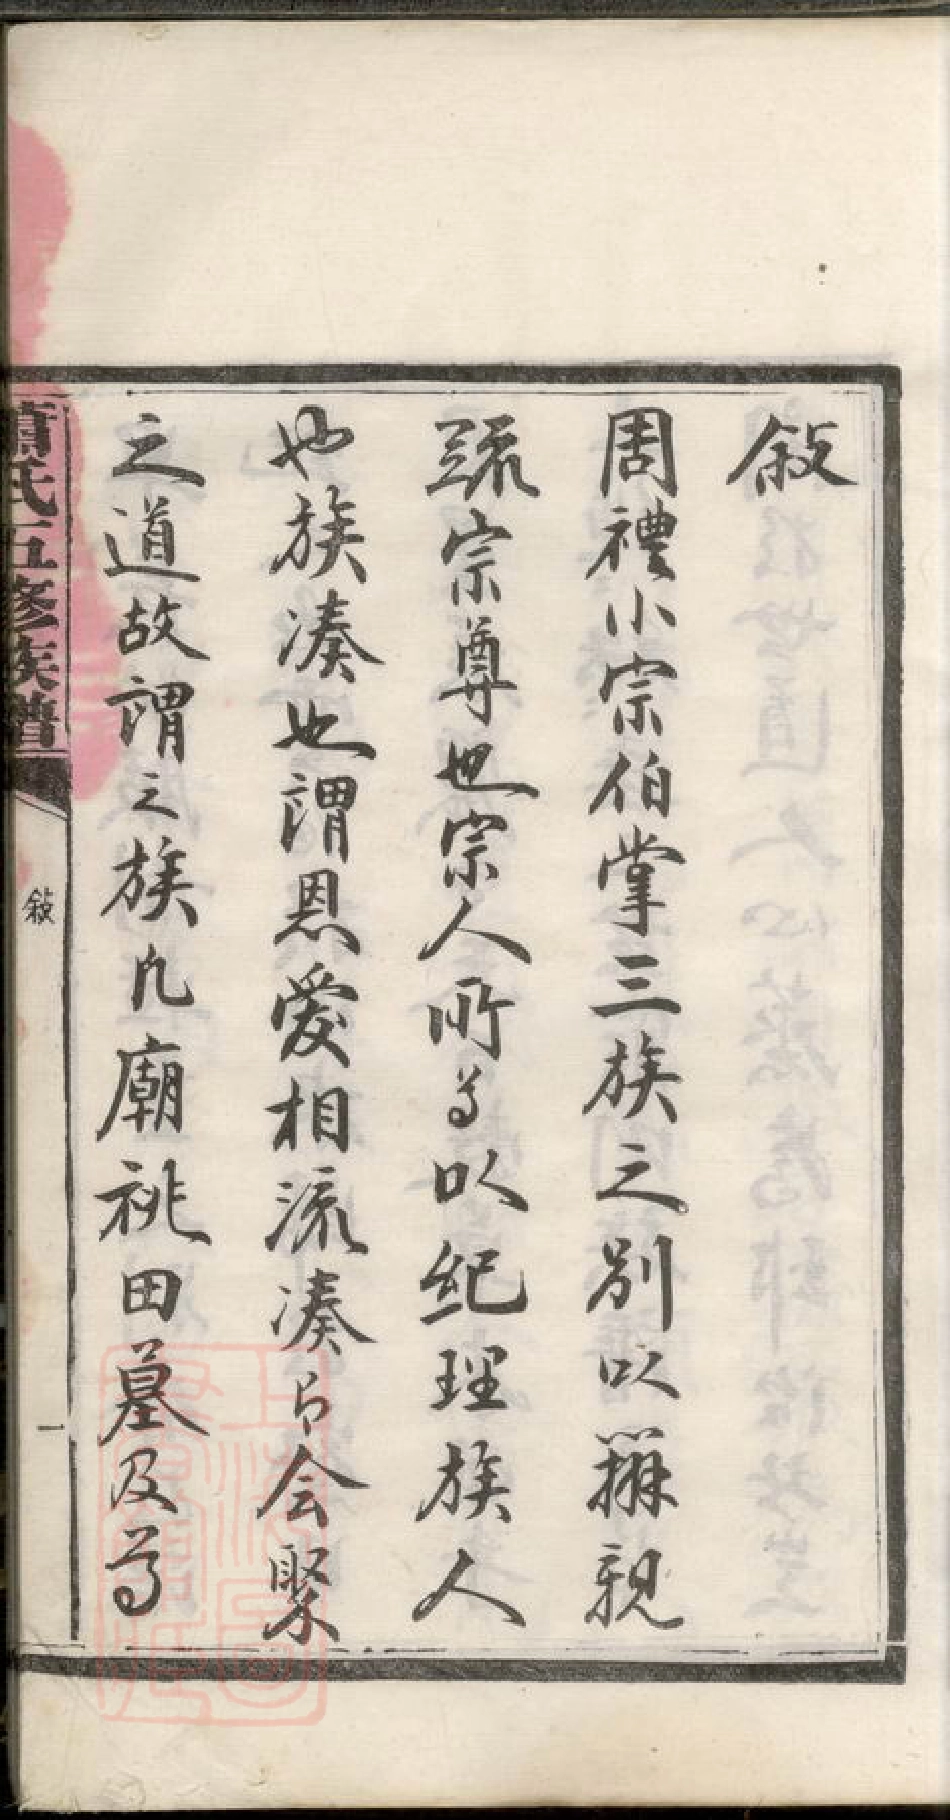 敘
周禮小宗伯掌三族之別以辨親
疏宗尊也宗人所尊以紀理族人
也族湊也謂恩愛相流湊有會聚
之道故謂之族凡廟祧田墓及尊
蕭氏五修族譜
敘
一